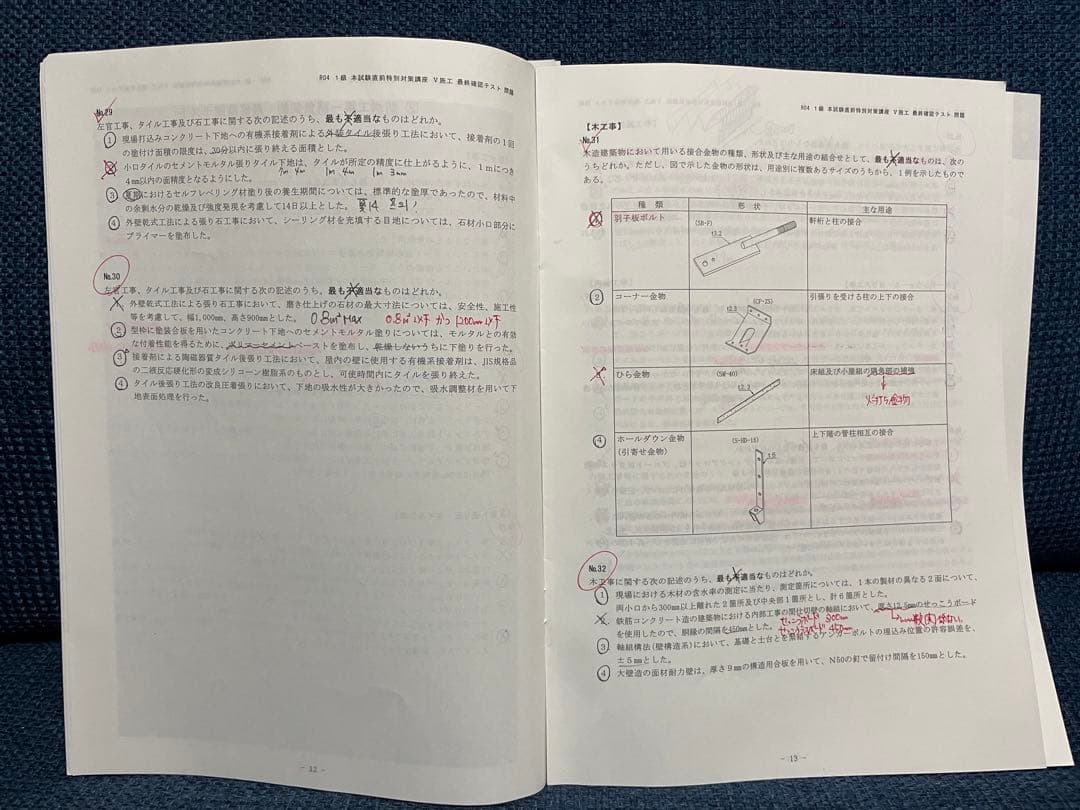 R04 1級 本試験直前特別対策講座 Ⅴ施工 最終確認テスト 問題
No.29
左官工事、タイル工事及び石工事に関する次の記述のうち、最も不適当なものはどれか。
1 現場打込みコンクリート下地への有機系接着剤による外装タイル後張り工法において、接着剤の1回
の塗付け面積の限度は、30分以内に張り終える面積とした。
2 小口タイルのセメントモルタル張りタイル下地は、タイルが所定の精度に仕上がるように、1mにつき
4mm以内の面精度となるようにした。
7m 4m 1m 4m 1m 3mm
3 夏期におけるセルフレベリング材塗り後の養生期間については、標準的な塗厚であったので、材料中
の余剰水分の乾燥及び強度発現を考慮して14日以上とした。
4 外壁乾式工法による張り石工事において、シーリング材を充填する目地については、石材小口部分に
プライマーを塗布した。
No.30
左官工事、タイル工事及び石工事に関する次の記述のうち、最も不適当なものはどれか。
1 外壁乾式工法による張り石工事において、磨き仕上げの石材の最大寸法については、安全性、施工性
等を考慮して、幅1,000mm、高さ900mmとした。
0.8㎡ Max 0.8㎡以下 かつ 1200mm以下
2 型枠に塗装合板を用いたコンクリート下地へのセメントモルタル塗りについては、モルタルとの有効
な付着性能を得るために、ポリマーセメントペーストを塗布し、乾燥しないうちに下塗りを行った。
3 接着剤による陶磁器質タイル後張り工法において、屋内の壁に使用する有機系接着剤は、JIS規格品
の二液反応硬化形の変成シリコーン樹脂系のものとし、可使時間内にタイルを張り終えた。
4 タイル後張り工法の改良圧着張りにおいて、下地の吸水性が大きかったので、吸水調整材を用いて下
地表面処理を行った。
- 12 -
R04 1級 本試験直前特別対策講座 Ⅴ施工 最終確認テスト 問題
【木工事】
No.31
木造建築物において用いる接合金物の種類、形状及び主な用途の組合せとして、最も不適当なものは、次の
うちどれか。ただし、図で示した金物の形状は、用途別に複数あるサイズのうちから、1例を示したもので
ある。
種類 形状 主な用途
1 羽子板ボルト (SB・F) t3.2 軒桁と柱の接合
2 コーナー金物 (CP・ZS) t2.3 引張りを受ける柱の上下の接合
3 ひら金物 (SM-40) t3.2 床組及び小屋組の隅角部の補強
火打ち金物
4 ホールダウン金物 (S-HD-15) t5 上下階の管柱相互の接合
(引寄せ金物)
No.32
木工事に関する次の記述のうち、最も不適当なものはどれか。
1 現場における木材の含水率の測定に当たり、測定箇所については、1本の製材の異なる2面について、
両小口から300mm以上離れた2箇所及び中央部1箇所とし、計6箇所とした。
2 鉄筋コンクリート造の建築物における内部工事の間仕切壁の軸組において、厚さ12.5mmのせっこうボード
を使用したので、胴縁の間隔を450mmとした。
せっこうボード 300mm
450mm
3 軸組構法(壁構造系)において、基礎と土台とを緊結するアンカーボルトの埋込み位置の許容誤差を、
±5mmとした。
4 大壁造の面材耐力壁は、厚さ9mmの構造用合板を用いて、N50の釘で留付け間隔を150mmとした。
- 13 -